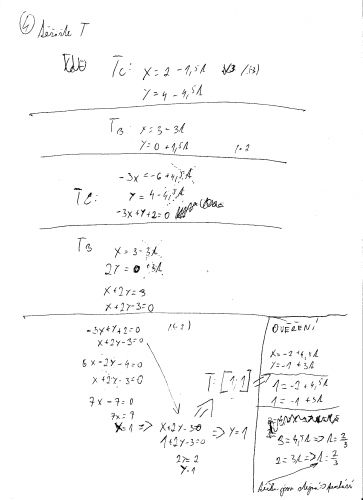 ④ Těžiště T
T_C: x = 2 - 1,5λ
y = 4 - 4,5λ
T_B: x = 3 - 3λ
y = 0 + 1,5λ /·2
-3x = -6 + 4,5λ
T_C: y = 4 - 4,5λ
-3x + y + 2 = 0
T_B x = 3 - 3λ
2y = 0 + 3λ
x + 2y = 3
x + 2y - 3 = 0
-3x + y + 2 = 0 /(·-2)
x + 2y - 3 = 0
6x - 2y - 4 = 0
x + 2y - 3 = 0
7x - 7 = 0
7x = 7
x = 1 => x + 2y - 3 = 0
1 + 2y - 3 = 0
2y = 2
y = 1
=> y = 1
T: [1; 1]
OVĚŘENÍ
x = -2 + 4,5λ
y = -1 + 3λ
1 = -2 + 4,5λ
1 = -1 + 3λ
3 = 4,5λ => λ = 2/3
2 = 3λ => λ = 2/3